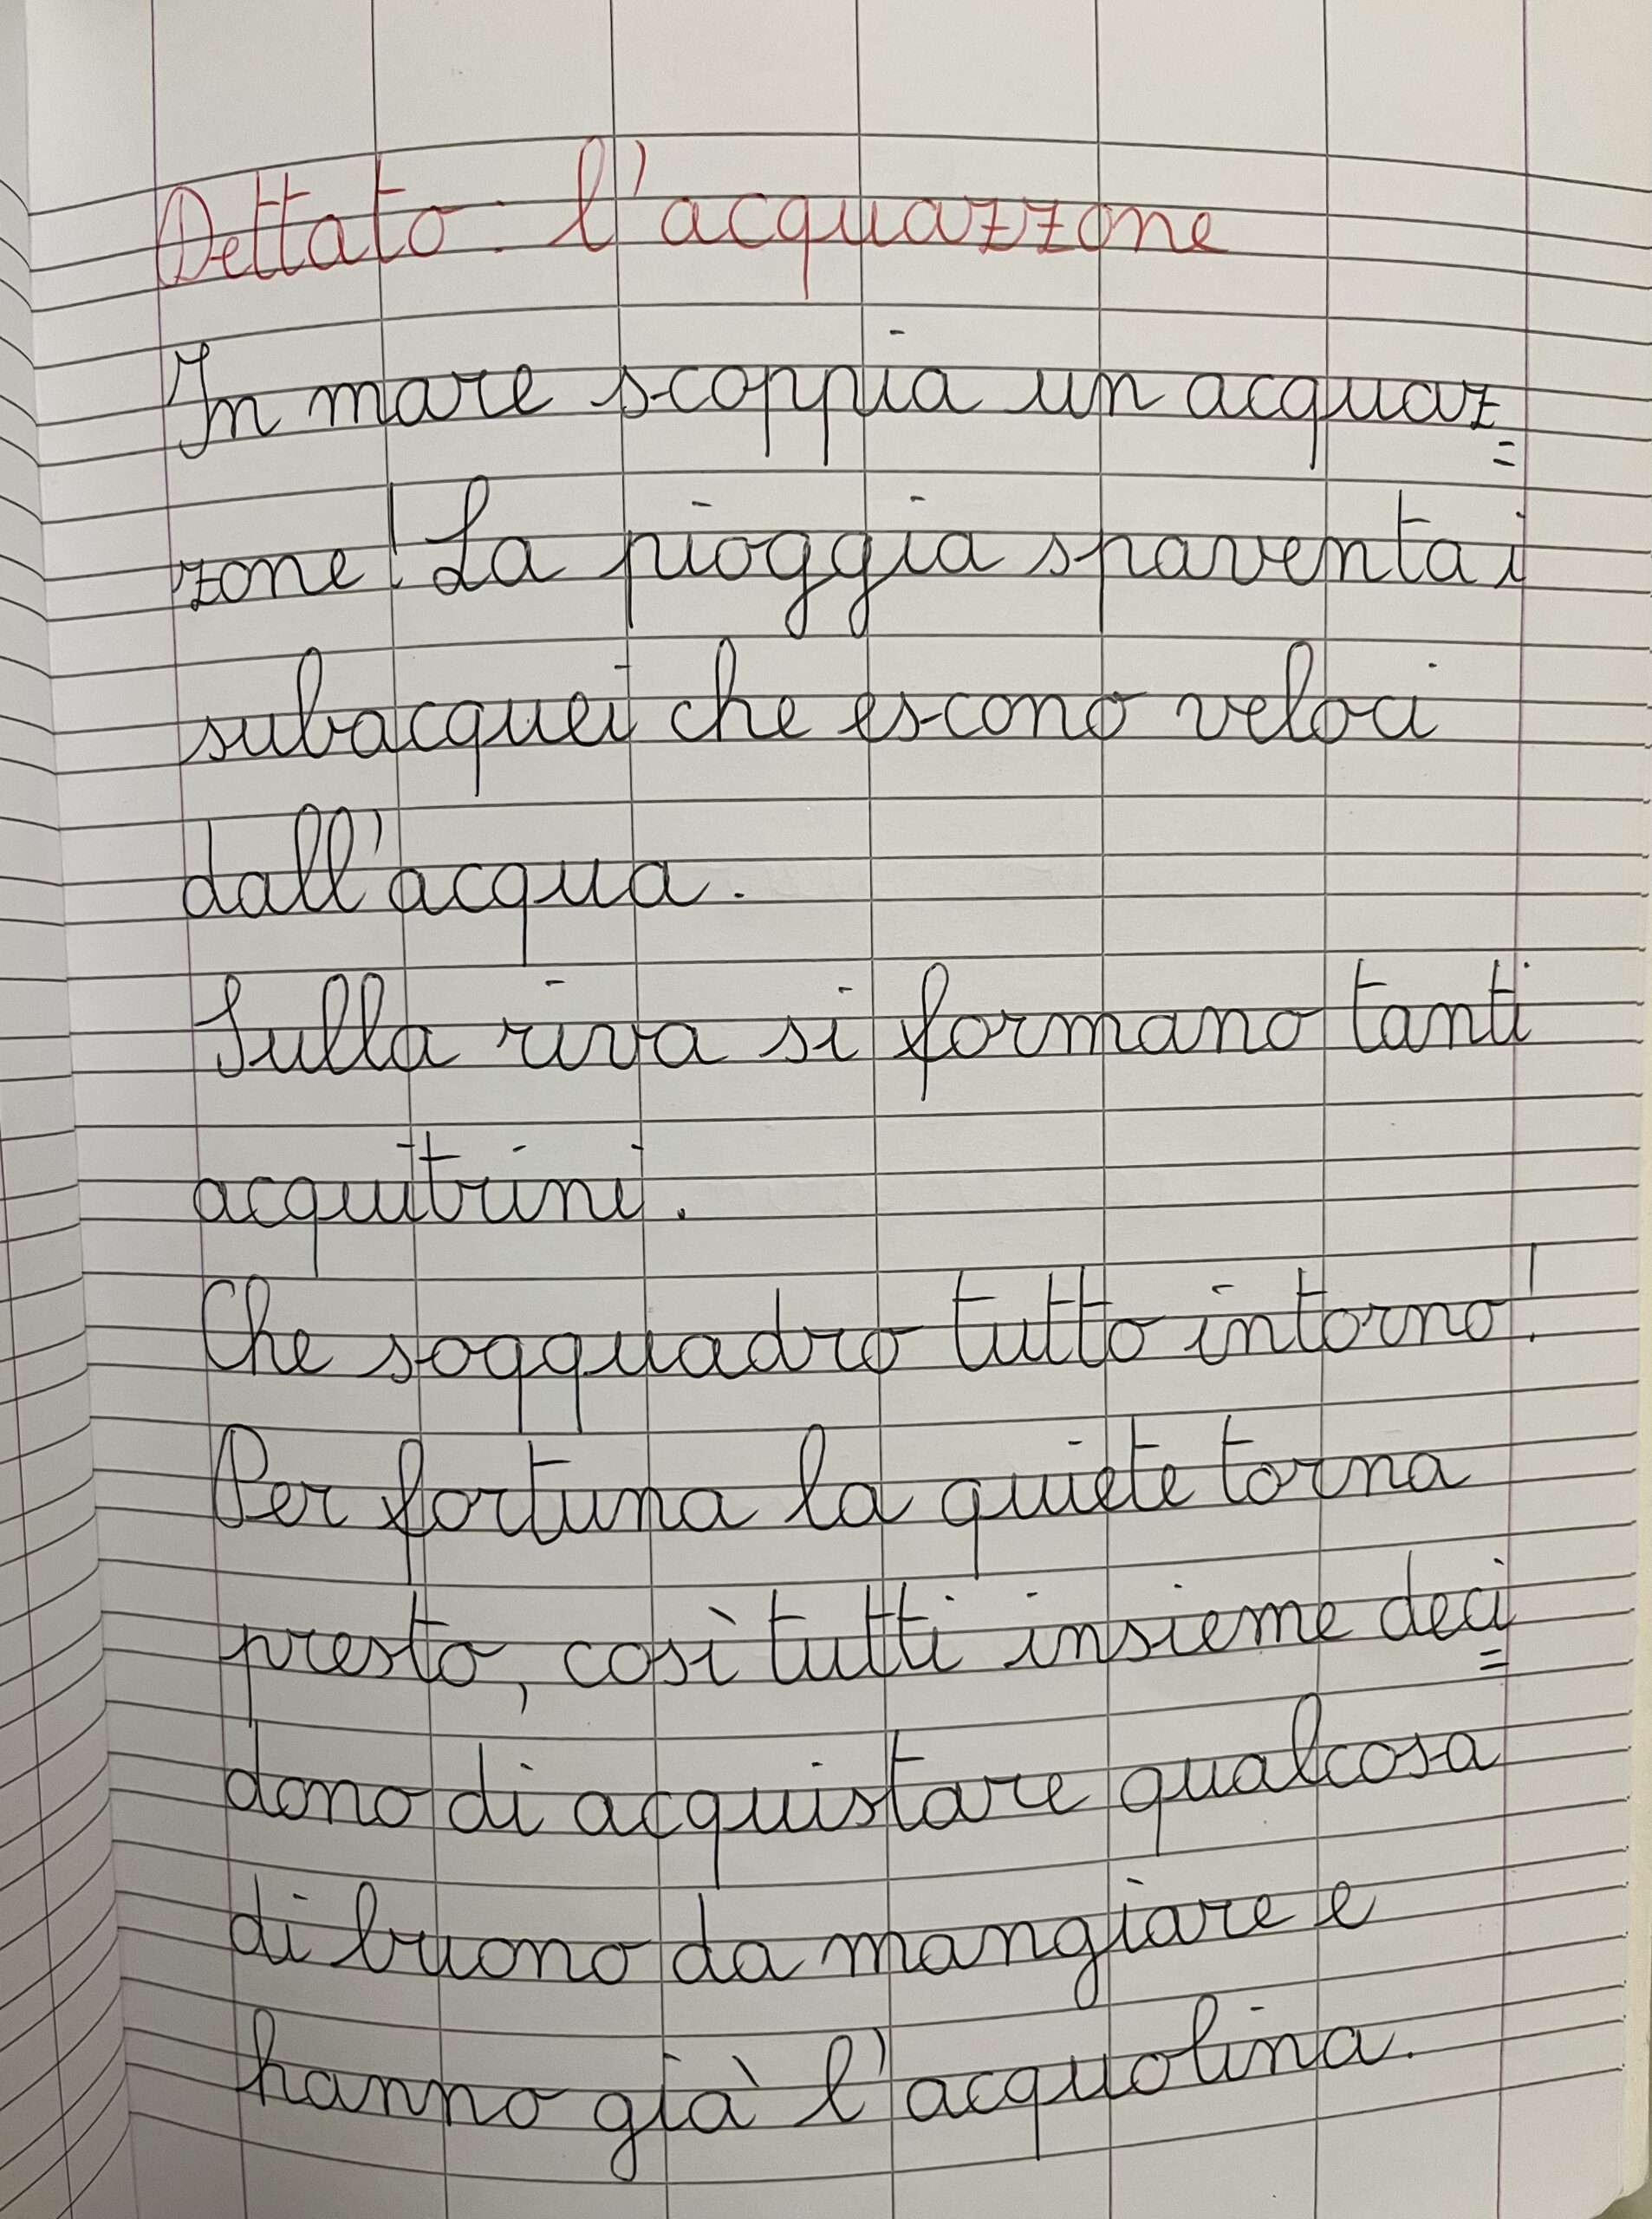 Dettato: l'acquazzone
In mare scoppia un acquaz=
zone! La pioggia spaventa i
subacquei che escono veloci
dall'acqua.
Sulla riva si formano tanti
acquitrini.
Che soqquadro tutto intorno!
Per fortuna la quiete torna
presto, così tutti insieme deci=
dono di acquistare qualcosa
di buono da mangiare e
hanno già l'acquolina.